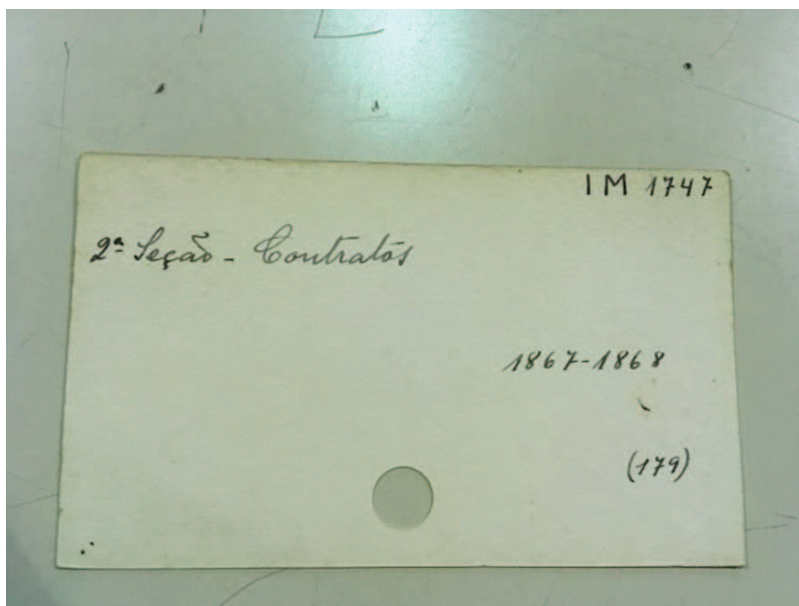 IM 1747
2ª Seção - Contratos
1867-1868
(179)